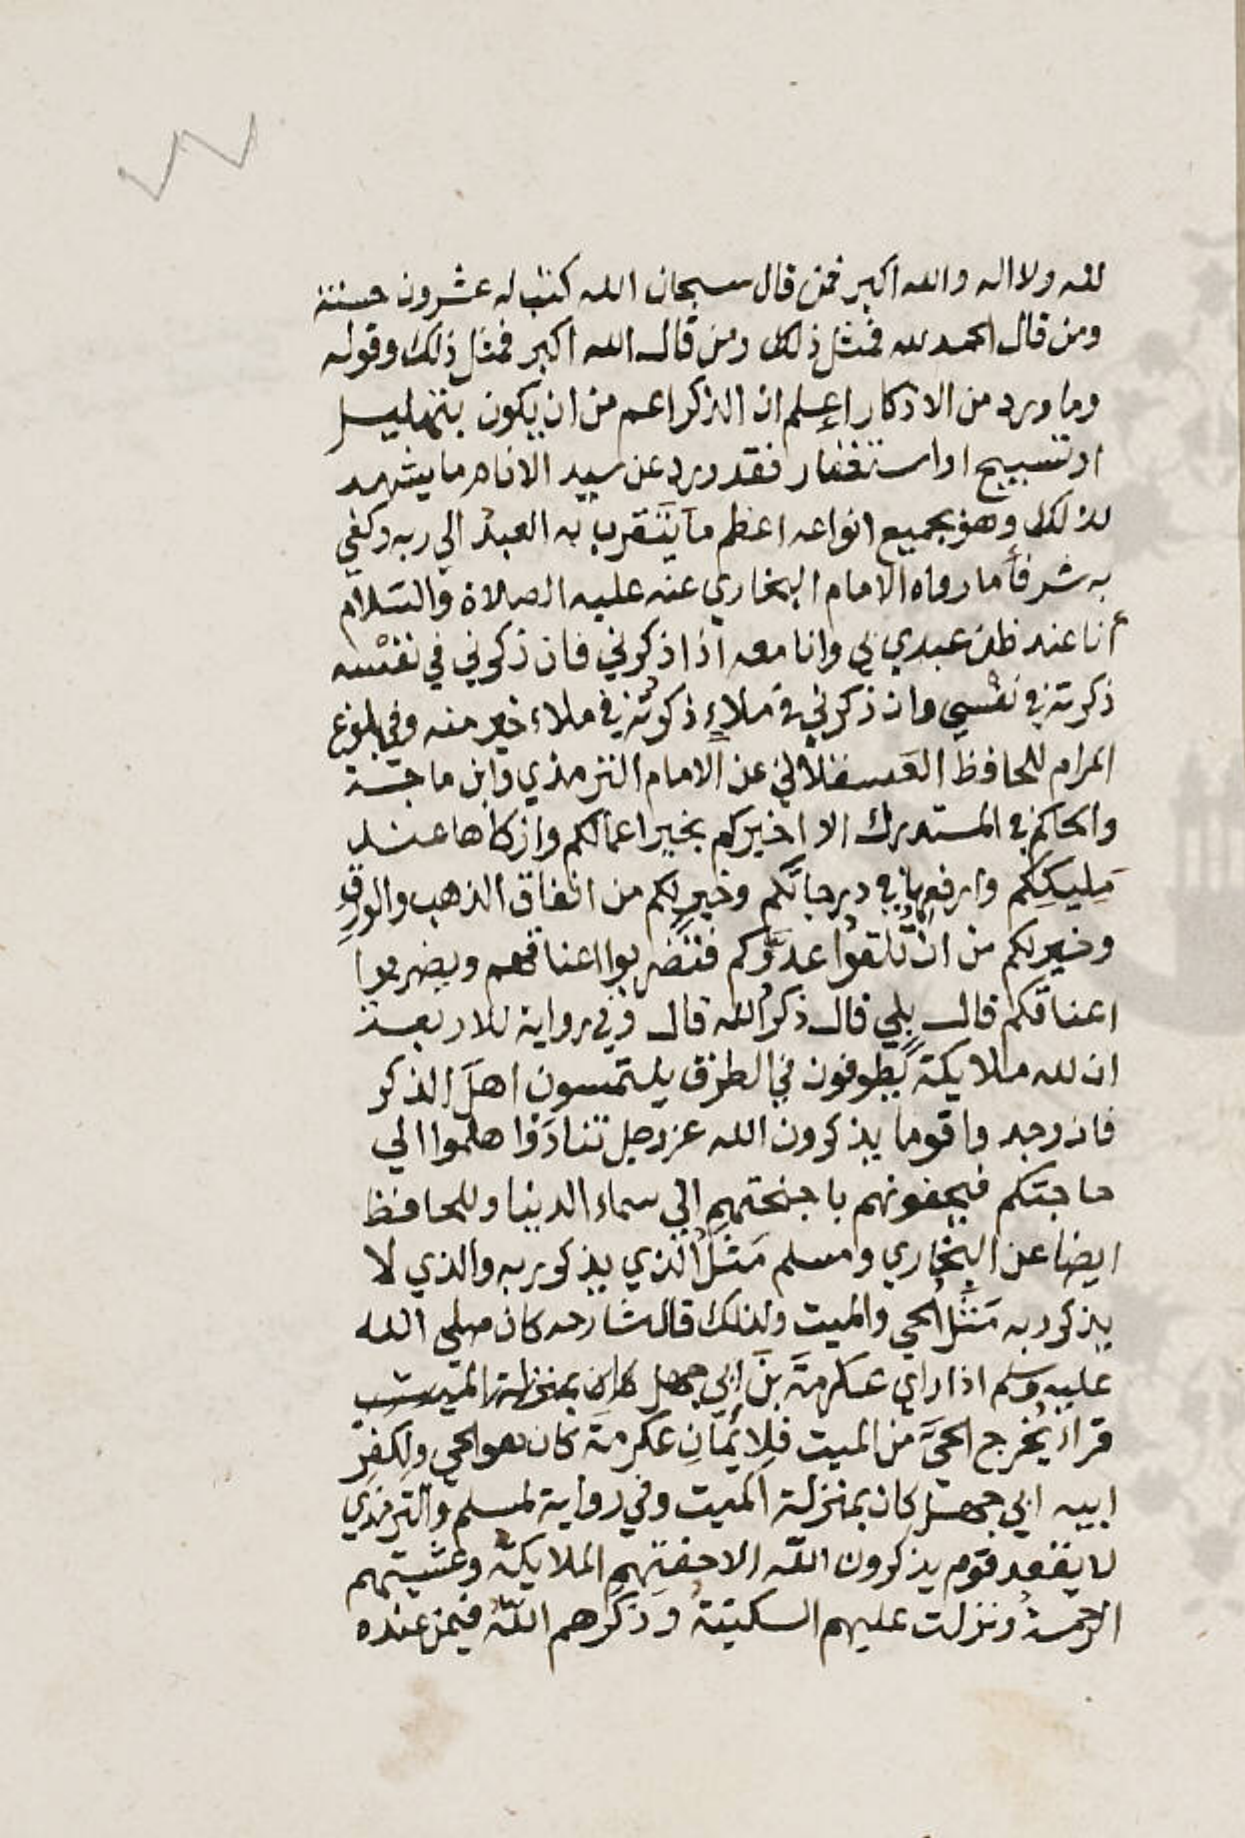 لله ولا اله والله اكبر فمن قال سبحان الله كتب له عشرون حسنة
ومن قال الحمد لله فمثل ذلك ومن قال الله اكبر فمثل ذلك وقوله
وما ورد من الاذكار اعلم ان الذكر اعم من ان يكون بتهليل
او تسبيح او استغفار فقد ورد عن سيد الانام ما يشهد
لذلك وهو بجميع انواعه اعظم ما يتقرب به العبد الي ربه وكفي
به شرفاً ما رواه الامام البخاري عنه عليه الصلاة والسلام
أنا عند ظن عبدي بي وانا معه اذا ذكرني فان ذكرني في نفسه
ذكرته في نفسي وان ذكرني في ملاءٍ ذكرته في ملاء خير منه وفي بلوغ
المرام للحافظ العسقلاني عن الامام الترمذي وابن ماجة
والحاكم في المستدرك الا اخبركم بخير اعمالكم وازكاها عند
مليككم وارفعها في درجاتكم وخير لكم من انفاق الذهب والورق
وخير لكم من ان تلقوا عدوكم فتضربوا اعناقهم ويضربوا
اعناقكم قال بلي قال ذكر الله قال وفي رواية للاربعة
ان لله ملايكة يطوفون في الطرق يلتمسون اهل الذكر
فان وجدوا قوما يذكرون الله عز وجل تنادَوا هلموا الي
حاجتكم فيحفونهم باجنحتهم الي سماء الدنيا وللحافظ
ايضا عن البخاري ومسلم مَثَلُ الذي يذكر ربه والذي لا
يذكر ربه مَثَلُ الحي والميت ولذلك قال شارحه كان صلي الله
عليه وسلم اذا راي عكرمةَ بنَ ابي جهل
قرا يُخرج الحيَّ من الميت فلِايمانِ عكرمة كان هو الحي ولكفرِ
ابيه ابي جهل كان بمنزلة الميت وفي رواية لمسلم والترمذي
لا يقعد قوم يذكرون اللّه الا حفتهم الملايكة وغشيتهم
الرحمةُ ونزلت عليهم السكينةُ وذكرهم اللّه فيمن عنده